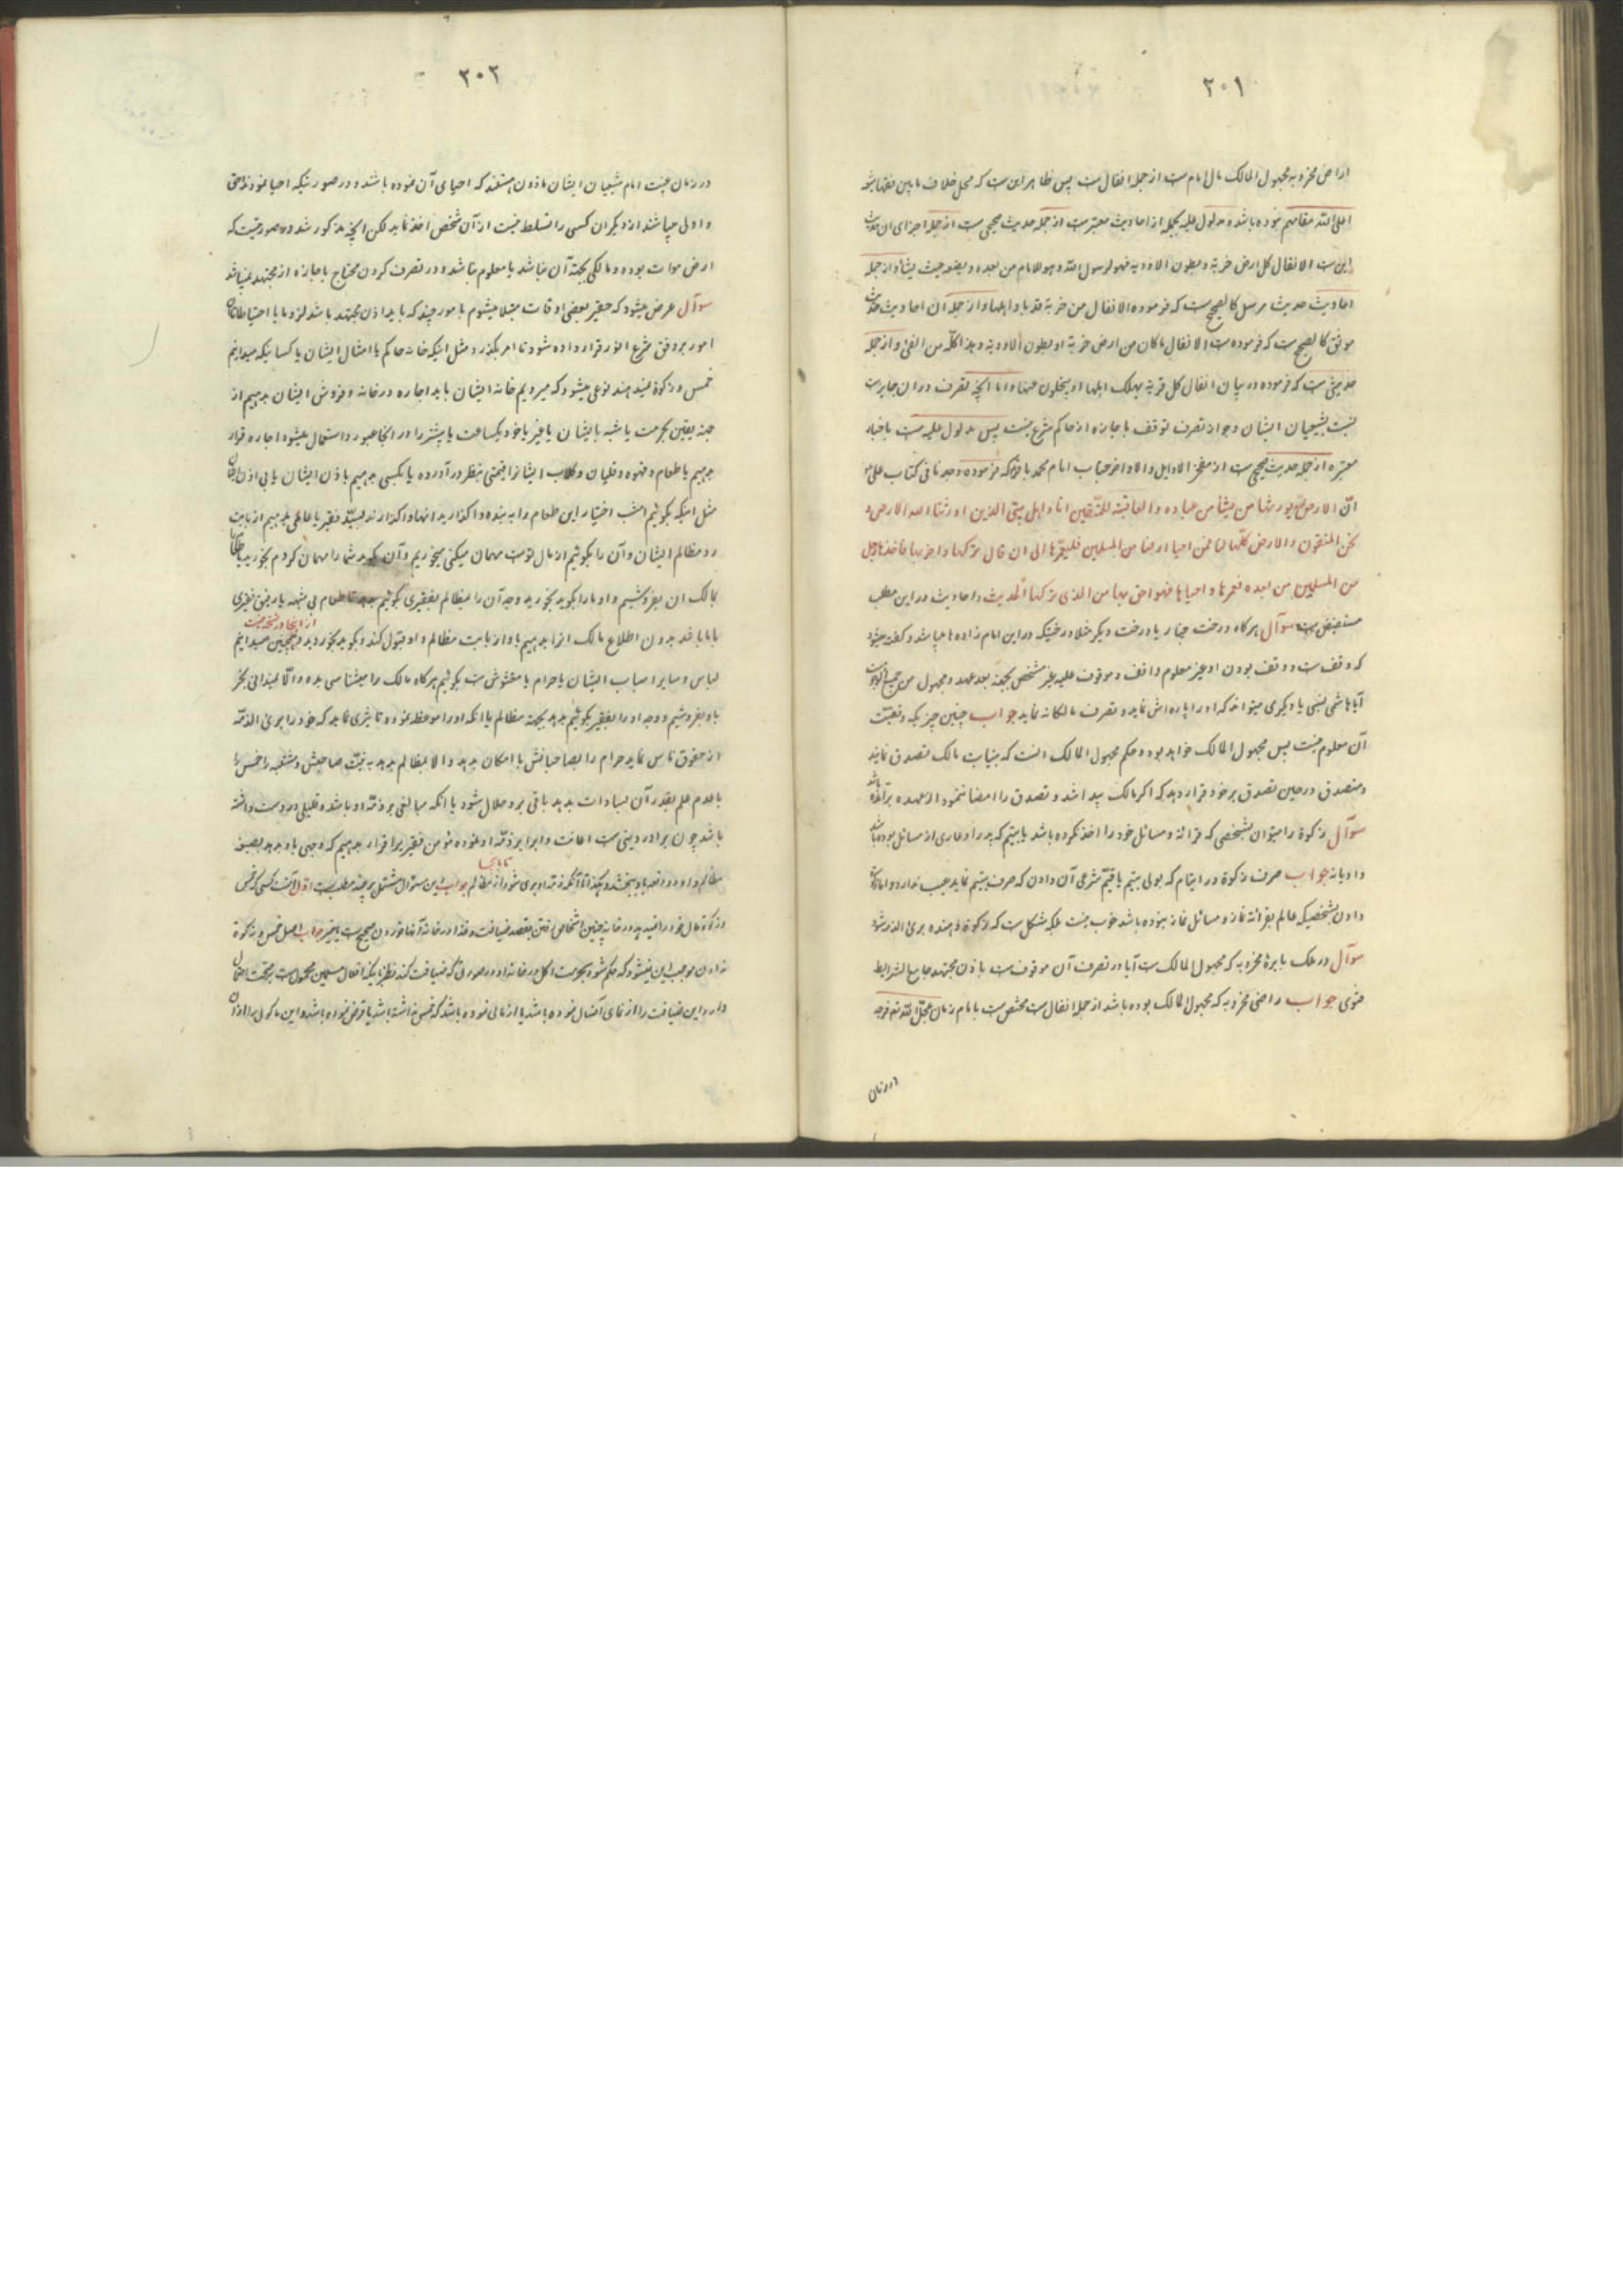 ۲۰۱
اراضی مخروبه مجهول المالک مال امام است از جمله انفال است پس ظاهر این است که محل خلاف مابین فقها
اعلی الله مقامهم نبوده باشد و مدلول علیه بجمله از احادیث معتبر است از جمله حدیث صحیحی است از جمله اجزای ان حدیث
این است الانفال کل ارض خربة و بطون الاودیه فهو لرسول الله و هو للامام من بعده یضعه حیث یشاء و از جمله
احادیث حدیث مرسل کالصحیح است که فرموده الانفال من خربة قد باد اهلها و از جمله آن احادیث حدیث
موثق کالصحیح است که فرموده است الانفال ما کان من ارض خربة او بطون الاودیة و هذا کله من الفئ و از جمله
حدیثی است که فرموده در بیان انفال کل قریة یهلک اهلها او یجلون عنها و اما آنچه تصرف در ان جایز است
نسبت بشیعیان ایشان و جواز تصرف توقف باجازه از حاکم شرع نیست پس مدلول علیه است باخبار
معتبره از جمله حدیث صحیحی است از مفخر الاوایل و الاواخر جناب امام محمد باقر که فرموده وجدنا فی کتاب علی
انّ الارض لله یورثها من یشأ من عباده و العاقبة للمتقین انا و اهل بیتی الذین اورثنا الله الارض و
نحن المتقون و الارض کلّها لنا فمن احیا ارضا من المسلمین فلیعمرها الی ان قال ترکها و اخربها فأخذها رجل
من المسلمین من بعده فعمرها و احیاها فهو احق بها من الذی ترکها الحدیث و احادیث در این مطلب
مستفیض است سوآل هرگاه درخت چنار یا درخت دیگر مثلا درختیکه در این امام زاده ها میباشد و گفته میشود
که وقف است و وقف بودن او غیر معلوم واقف و موقوف علیه غیر مشخص بجهة بعد عهد و مجهول من جمیع
آیا هاشمی نسبی یا دیگری میتواند که او را پاره اش نماید و تصرف مالکانه نماید جواب چنین چیزیکه وقفیت
آن معلوم نیست پس مجهول المالک خواهد بود و حکم مجهول المالک انست که بنیابت مالک تصدق نمایند
و متصدق در حین تصدق بر خود قرار دهد که اگر مالک پیدا شد و تصدق را امضا ننمود از عهده برآید
سوآل زکوة را میتوان بشخصی که قرائة و مسائل خود را اخذ نکرده باشد یا بیتیم که پدر او عاری از مسائل بوده باشد
داد یا نه جواب صرف زکوة در ایتام که بولی یتیم یا قیّم شرعی آن دادن که صرف یتیم نماید عیب ندارد و اما زکوة
دادن بشخصیکه عالم بقرائة نماز و مسائل نماز نبوده باشد خوب نیست بلکه مشکل است که زکوة دهنده برئ الذمه شود
سوآل در ملک بایرهٔ مخروبه که مجهول المالک است آیا در تصرف آن موقوف است باذن مجتهد جامع الشرایط
فتوی جواب راضی مخروبه که مجهول المالک بوده باشد از جمله انفال است مختص است بامام زمان عجّل الله فرجه
در زمان
۲۰۲
در زمان غیبت امام شیعیان ایشان ماذون هستند که احیای آن نموده باشند و در صورتیکه احیا نمودند احق
و اولی میباشند از دیگران کسی را تسلط نیست از آن شخص اخذ نماید لکن آنچه مذکور شد در صورتیست که
ارض موات بوده و مالکی بجهة آن نباشد یا معلوم نباشد و در تصرف کردن محتاج باجازه از مجتهد نمیباشد
سوآل عرض میشود که حقیر بعضی اوقات مبتلا میشوم بامور چند که باید اذن مجتهد باشد لزوما یا احتیاطا
امور بر وفق شرع انور قرار داده شود تا امر بگذرد مثل اینکه خانه حاکم یا امثال ایشان یا کسانیکه میدانیم
خمس و زکوة نمیدهند نوعی میشود که میرویم خانه ایشان باید اجاره در خانه و فروش ایشان بدهیم از
جهة یقین بحرمت یا شبه بایشان یا غیر یا خود یکساعت یا پیشتر را در آنجا عبور و استعمال میشود اجاره قرار
بدهیم یا طعام و قهوه و قلیان و گلاب ایشانرا قیمتی بنظر در آورده یا بکسی بدهیم باذن ایشان یا بی اذن
مثل اینکه بگوئیم امشب اختیار این طعام را به بنده واگذارید انها واگذارند بسیّد فقیر یا عامی بدهیم از بابت
رد مظالم ایشان و آن را بگوئیم از مال تو است مهمان میکنی میخوریم و آن بگوید شما را مهمان کردم بخورید
بمالک ان بفروشیم و او ما را بگوید بخورید وجه آن را بمظالم بفقیری بگوئیم طعام بی شبهه یا رفیق فقیری
با ما باشد بدون اطلاع مالک انرا بدهیم باو از بابت مظالم و او قبول کند و بگوید بخورید و همچنین میدانیم
لباس و سایر اسباب ایشان یا حرام یا مغشوش است بگوئیم هرگاه مالک را میشناسی بده و الّا نمیدانی بخر
باو بفروشیم و وجه او را بفقیر بگوئیم بدهد بجهة مظالم یا انکه او را موعظه نموده تاثیری نماید که خود را برئ الذمّه
از حقوق ناس نماید حرام را بصاحبانش با امکان بدهد و الا بمظالم بدهد به نیّت صاحبش و مشتبه را خمس
با عدم علم بقدر آن بسادات بدهد باقی بر او حلال شود یا انکه مبالغی بر ذمّه او باشد و قلیلی در دست داشته
باشد چون برادر دینی است اعانت و ابرا بر ذمّه او نموده مؤمن فقیر را قرار بدهیم که وجهی باو بدهد بصیغه
مظالم و او رد نموده باو ببخشد و هکذا تا آنکه ذمّه او بری شود از مظالم جواب این سئوال مشتمل بر چند مطلب است اوّل آنست کسی که خمس
و زکوة مال خود را نمیدهد در خانه چنین اشخاص رفتن بقصد ضیافت و غذا در خانه آنها خوردن صحیح است یا نه جواب اصل خمس و زکوة
ندادن موجب این نمیشود که حکم شود بحرمت اکل در خانه او در صورتی که ضیافت کند نظر باینکه افعال مسلمین محمول است بر صحّت احتمال
دارد این ضیافت را از نمای آنمال نموده باشد یا از مالی نموده باشد که خمس نداشته باشد یا قرض نموده باشد و این ماکول را